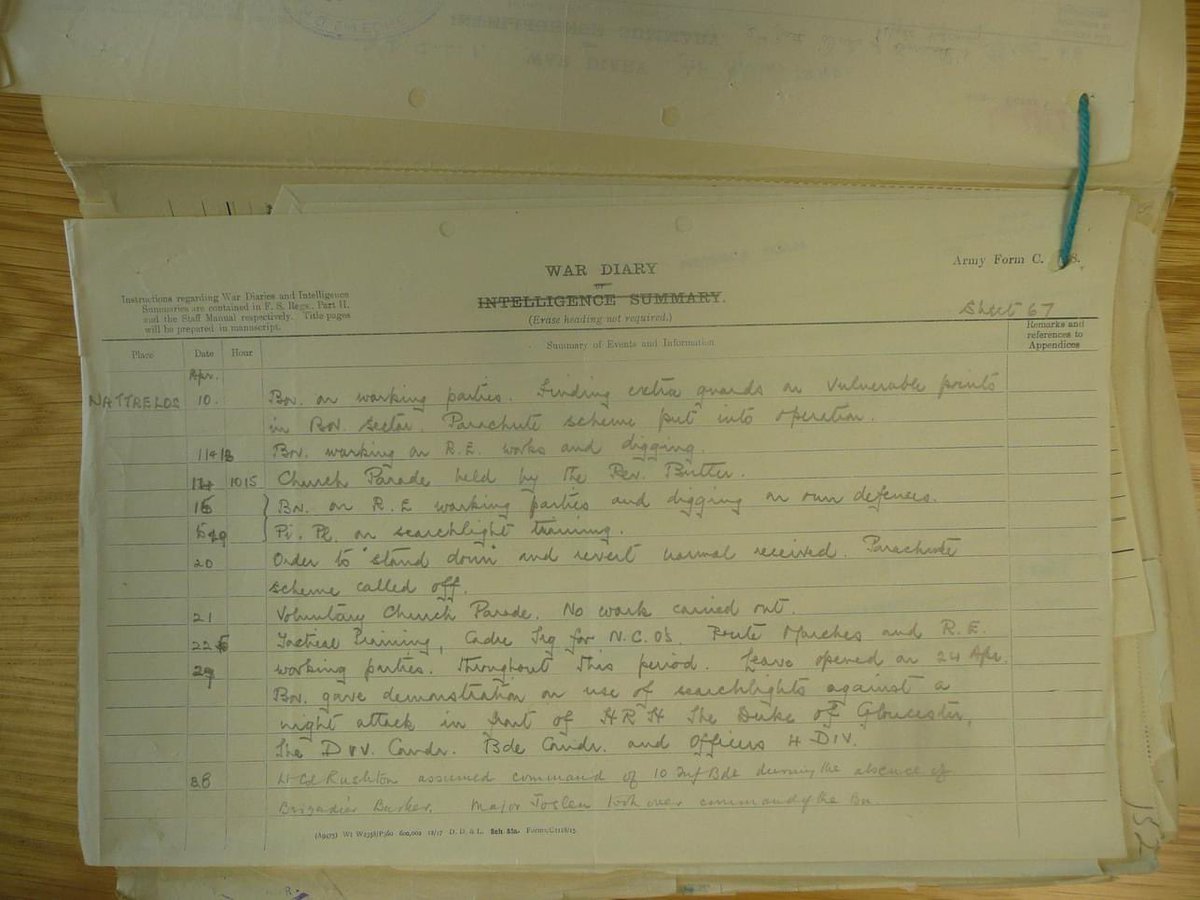 WAR DIARY
OF
INTELLIGENCE SUMMARY.
(Erase heading not required.)
Army Form C. 8.
Instructions regarding War Diaries and Intelligence
Summaries are contained in F. S. Regs., Part II.
and the Staff Manual respectively. Title pages
will be prepared in manuscript.
Sheet 67
Place Date Hour Summary of Events and Information Remarks and references to Appendices
Apr.
WATTRELOS 10. Bn. on working parties. Finding extra guards on vulnerable points
in Bn. Sector. Parachute scheme put into operation.
Bn. working on R.E. works and digging.
1015 Church Parade held by the Rev. Butter.
Bn. on R.E working parties and digging on own defences.
Pi. Pl. on searchlight training.
20 Order to "stand down" and revert normal received. Parachute
scheme called off.
21 Voluntary Church Parade. No work carried out.
22 Tactical Training, Cadre Trg for N.C.O's. Route Marches and R.E.
29 working parties. Throughout this period. Leave opened on 24 Apr.
Bn. gave demonstration on use of searchlights against a
night attack in front of H R H The Duke of Gloucester,
The Div. Comdr. Bde Comdr. and Officers 4 DIV.
Lt Col Rushton assumed command of 10 Inf Bde during the absence of
Brigadier Barker. Major Joslen took over command of the Bn.
(A9475) Wt W2358/P360 600,000 12/17 D. D. & L. Sch 52a. Forms/C2118/15.
152